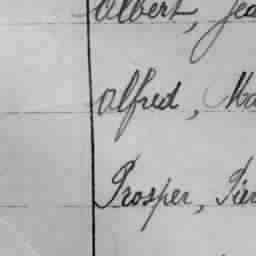 Albert, Jea
Alfred, Ma
Prosper, Pier